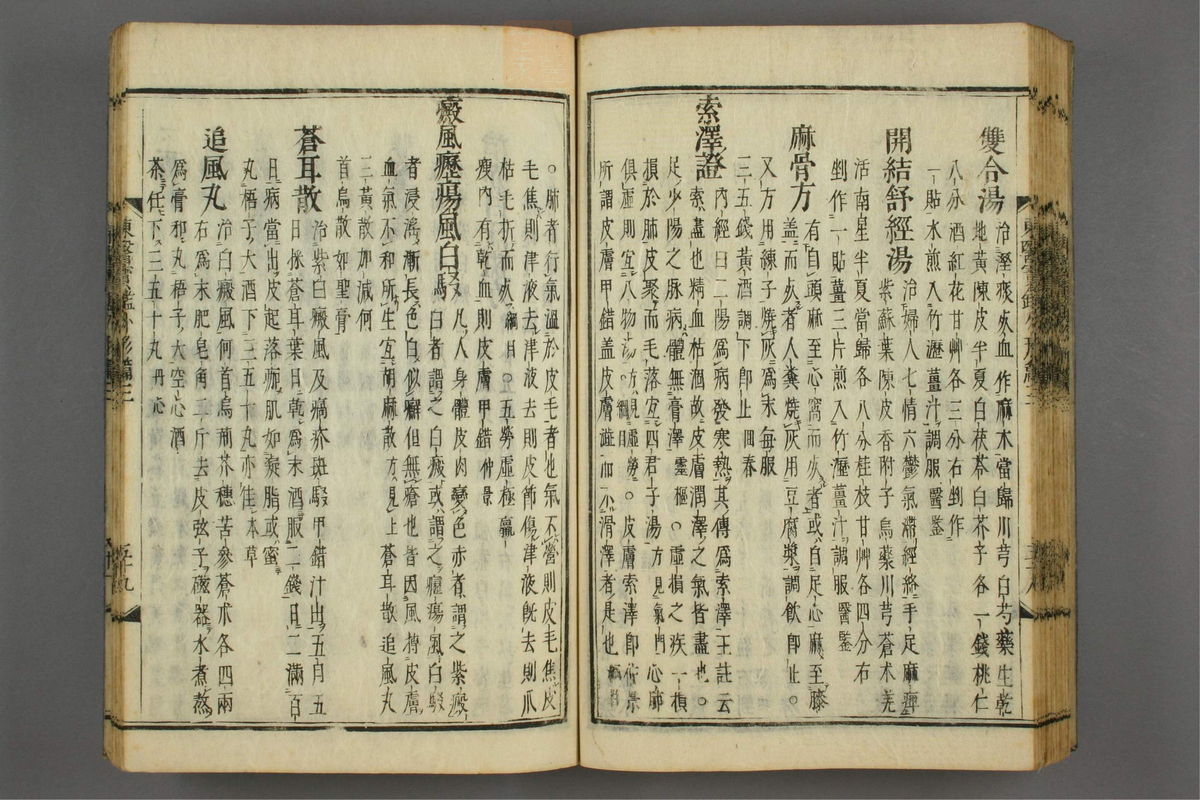 雙合湯 治溼痰死血作麻木當歸川芎白芍藥生乾
地黃陳皮半夏白茯苓白芥子各一錢桃仁
八分酒紅花甘艸各三分右剉作
一貼水煎入竹瀝薑汁調服醫鑒
開結舒經湯 治婦人七情六鬱氣滯經絡手足麻痺
紫蘇葉陳皮香附子烏藥川芎蒼朮羌
活南星半夏當歸各八分桂枝甘艸各四分右
剉作一貼薑三片煎入竹瀝薑汁調服醫鑒
麻骨方 有自頭麻至心窩而死者或自足心麻至膝
盖而死者人糞燒灰用豆腐漿調飮卽止○
又方用練子燒灰爲末每服
三五錢黃酒調下卽止回春
索澤證 內經曰二陽爲病發寒熱其傳爲索澤王註云
索盡也精血枯涸故皮膚潤澤之氣皆盡也○
足少陽之脉病體無膏澤靈樞○虛損之疾一損
損於肺皮聚而毛落宜四君子湯方見氣門心肺
俱虛則宜八物湯方見虛勞○皮膚索澤卽仲景
所謂皮膚甲錯盖皮膚澁而不滑澤者是也
○肺者行氣溫於皮毛者也氣不營則皮毛焦皮
毛焦則津液去津液去則皮節傷津液旣去則爪
枯毛折而死綱目○五勞虛極羸
瘦內有乾血則皮膚甲錯仲景
癜風癧瘍風白駁 凡人身體皮肉變色赤者謂之紫癜
白者謂之白癜或謂之癧瘍風白駁
者浸淫漸長色白似癬但無瘡也皆因風搏皮膚
血氣不和所生宜胡麻散方見上蒼耳散追風丸
三黃散加減何
首烏散如聖膏
蒼耳散 治紫白癜風及癘疥斑駁甲錯汁出五月五
日採蒼耳葉日乾爲末酒服二錢日二滿百
日病當出皮起落㾱肌如凝脂或蜜
丸梧子大酒下三五十丸亦佳本草
追風丸 治白癜風何首烏荊芥穗苦參蒼朮各四兩
右爲末肥皂角三斤去皮弦子磁器水煮熬
爲膏和丸梧子大空心酒
茶任下三五十丸丹心
東醫寶鑑外形篇三
五十九